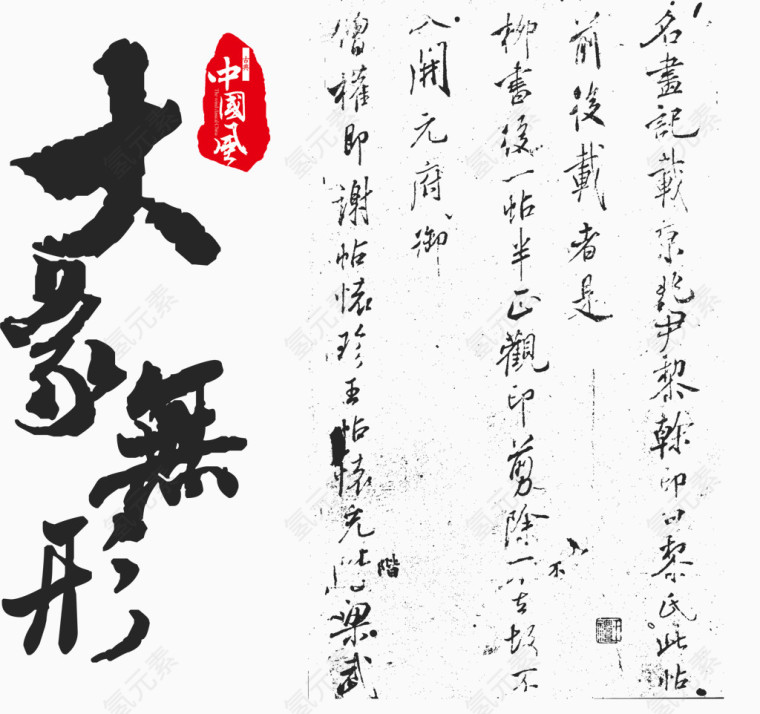 名畫記載京兆尹黎幹印曰黎氏此帖
前後載者是
柳書後一帖半正觀印剪除一古故不
不
入開元府御
僧權即謝帖懷珍王帖懷充
階
梁武
古典
中國風
大象無形
氢元素